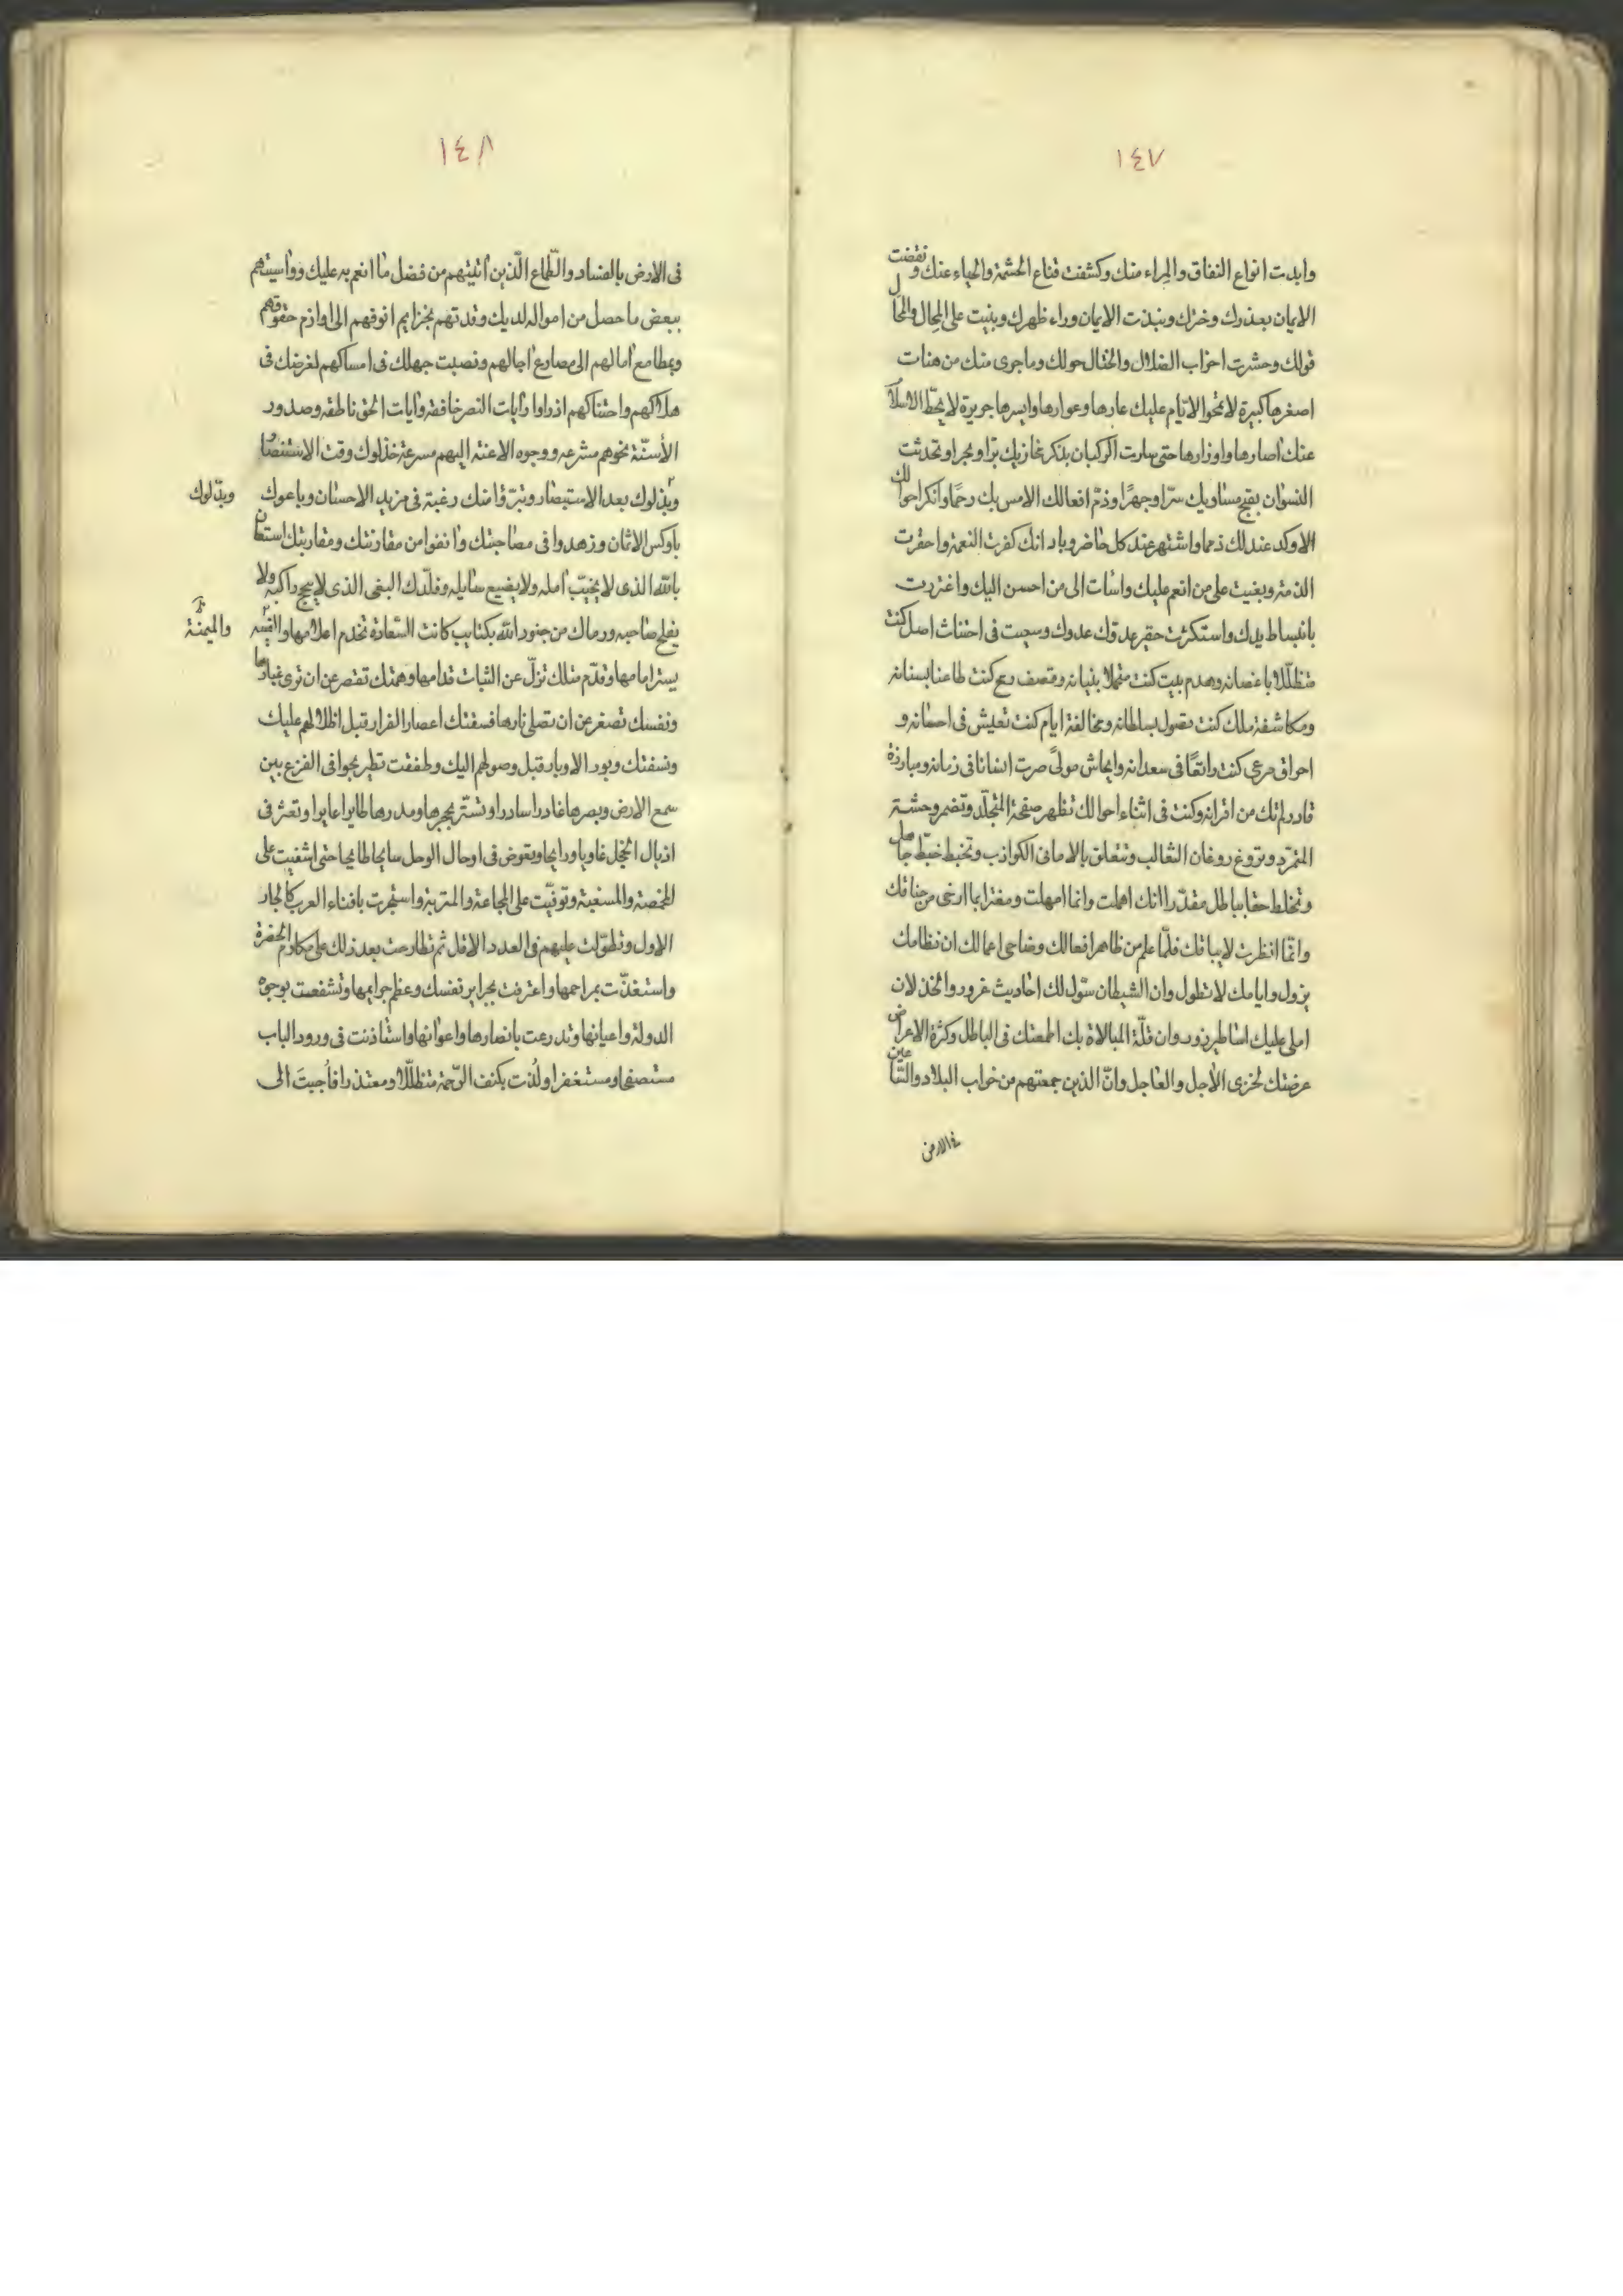 ١٤٧
وابدت انواع النفاق والمراء منك وكشفت قناع الحشمة والحياء عنك ونقضت
الايمان بعذرك وخترك ونبذت الايمان وراء ظهرك وبنيت على المحال والمحال
قولك وحشرت احزاب الضلال والختال حولك وما جرى منك من هنات
اصغرها كبيرة لا تمحو الايام عليك عارها وعوارها وايسرها جريرة لا يحط الاسلام
عنك اصارها واوزارها حتى سارت الركبان بذكر مخازيك برا وبحرا وتحدثت
النسوان بقبح مساويك سرّا وجهرًا وذمّ افعالك الامس بك رحمًا وانكر احوالك
الاوكد عندك ذمما واشتهر عند كل حاضر وباد انك كفرت النعمة واحقرت
الذمة وبغيت على من انعم عليك واسات الى من احسن اليك واغتررت
بانبساط يدك واستكثرت حقير عددك وسعيت فى اجتثاث اصل كنت
متظلّلا باغصانه وهدم بيت كنت بنيانه وقصف رمح كنت طاعنا بسنانه
ومكاشفة ملك كنت تصول بسلطانه ومخالفة ايام كنت تعيش فى احسانه و
احراق مرعى كنت راتعًا فى سعدانه وايحاش مولىً صرت انسانا فى زمانه ومبارزة
قادر لم تك من اقرانه وكنت فى اثناء احوالك تظهر صفحة المتجلّد وتضمر وحشة
المتمرّد وتروغ روغان الثعالب وتتعلق بالامانى الكواذب وتخبط خبط جاهل
وتخلط حقا بباطل مقدّرا انك اهملت وانما امهلت ومغترا بما ارخى من خناقك
وانمّا انظرت لاباقك فلمّا علم من ظاهر افعالك وضاحى اعمالك ان نظامك
يزول وايامك لا تطول وان الشيطان سوّل لك احاديث غرور والخذلان
املى عليك اساطير زور وان قلّة المبالاة بك اطمعتك فى الباطل وكثرة الاعراض
عرضتك لخزى الاجل والعاجل وانّ الذين جمعتهم من خراب البلاد والساعين
فى الارض
١٤٨
فى الارض بالفساد والطّماع الّذين اتيتهم من فضل ما انعم به عليك وواسيتهم
ببعض ما حصل من امواله لديك وقدتهم بخزايم انوفهم الى لوازم حقوقهم
وبمطامع امالهم الى مصارع اجالهم ونصبت جهلك فى امساكهم لغرضك فى
هلاكهم واحتناكهم اذ راوا رايات النصر خافقة وايات الحق ناطقة وصدور
الأسنّة نحوهم مشرعه ووجوه الاعنة اليهم مسرعة خذلوك وقت الاستنصار
وبذلوك بعد الاستبصار وتبرّؤا منك رغبة فى مزيد الاحسان وباعوك
وبدّلوك
باوكس الاثمان وزهدوا فى مصاحبتك وانفوا من مقارنتك ومقاربتك استعان
بالله الذى لا يخيّب امله ولا يضيع سايله وقلّدك البغى الذى لا ينجح راكبه ولا
يفلح صاحبه ورماك من جنود الله بكتايب كانت السّعادة تخدم اعلامها
والميمنة
يسير امامها وقدّم مثلك تزلّ عن الثبات قدامها وهمتك تقصر عن ان ترى غبارها
ونفسك تصغر عن ان تصلى نارها فسفتك اعصار الفرار قبل اظلالهم عليك
ونسفتك دبور الادبار قبل وصولهم اليك وطفقت تطير بجوافى الفزع بين
سمع الارض وبصرها غادرا سادرا وتستّر بحجرها ومدرها طايرا عايرا وتعثر فى
اذيال الخجل غاويا وتغوض فى اوحال الوحل سايحا طايحا حتى اشفيت على
المخمصة والمسغبة وتوفيّت على المجاعة والمتربة واستجرت بافناء العرب كالجار
الاول وتطوّلت عليهم فى العدد الاقل ثم تطارحت بعد ذلك على مكارم الحضرة
واستعذّت بمراحمها واعترفت بجراير نفسك وعظم جرايمها وتشفعت بوجوه
الدولة واعيانها وتدرعت بانصارها واعوانها واستاذنت فى ورود الباب
مستصفحا ومستغفرا ولُذت بكنف الرّحمة متظلّلا ومعتذرا فأجبتَ الى